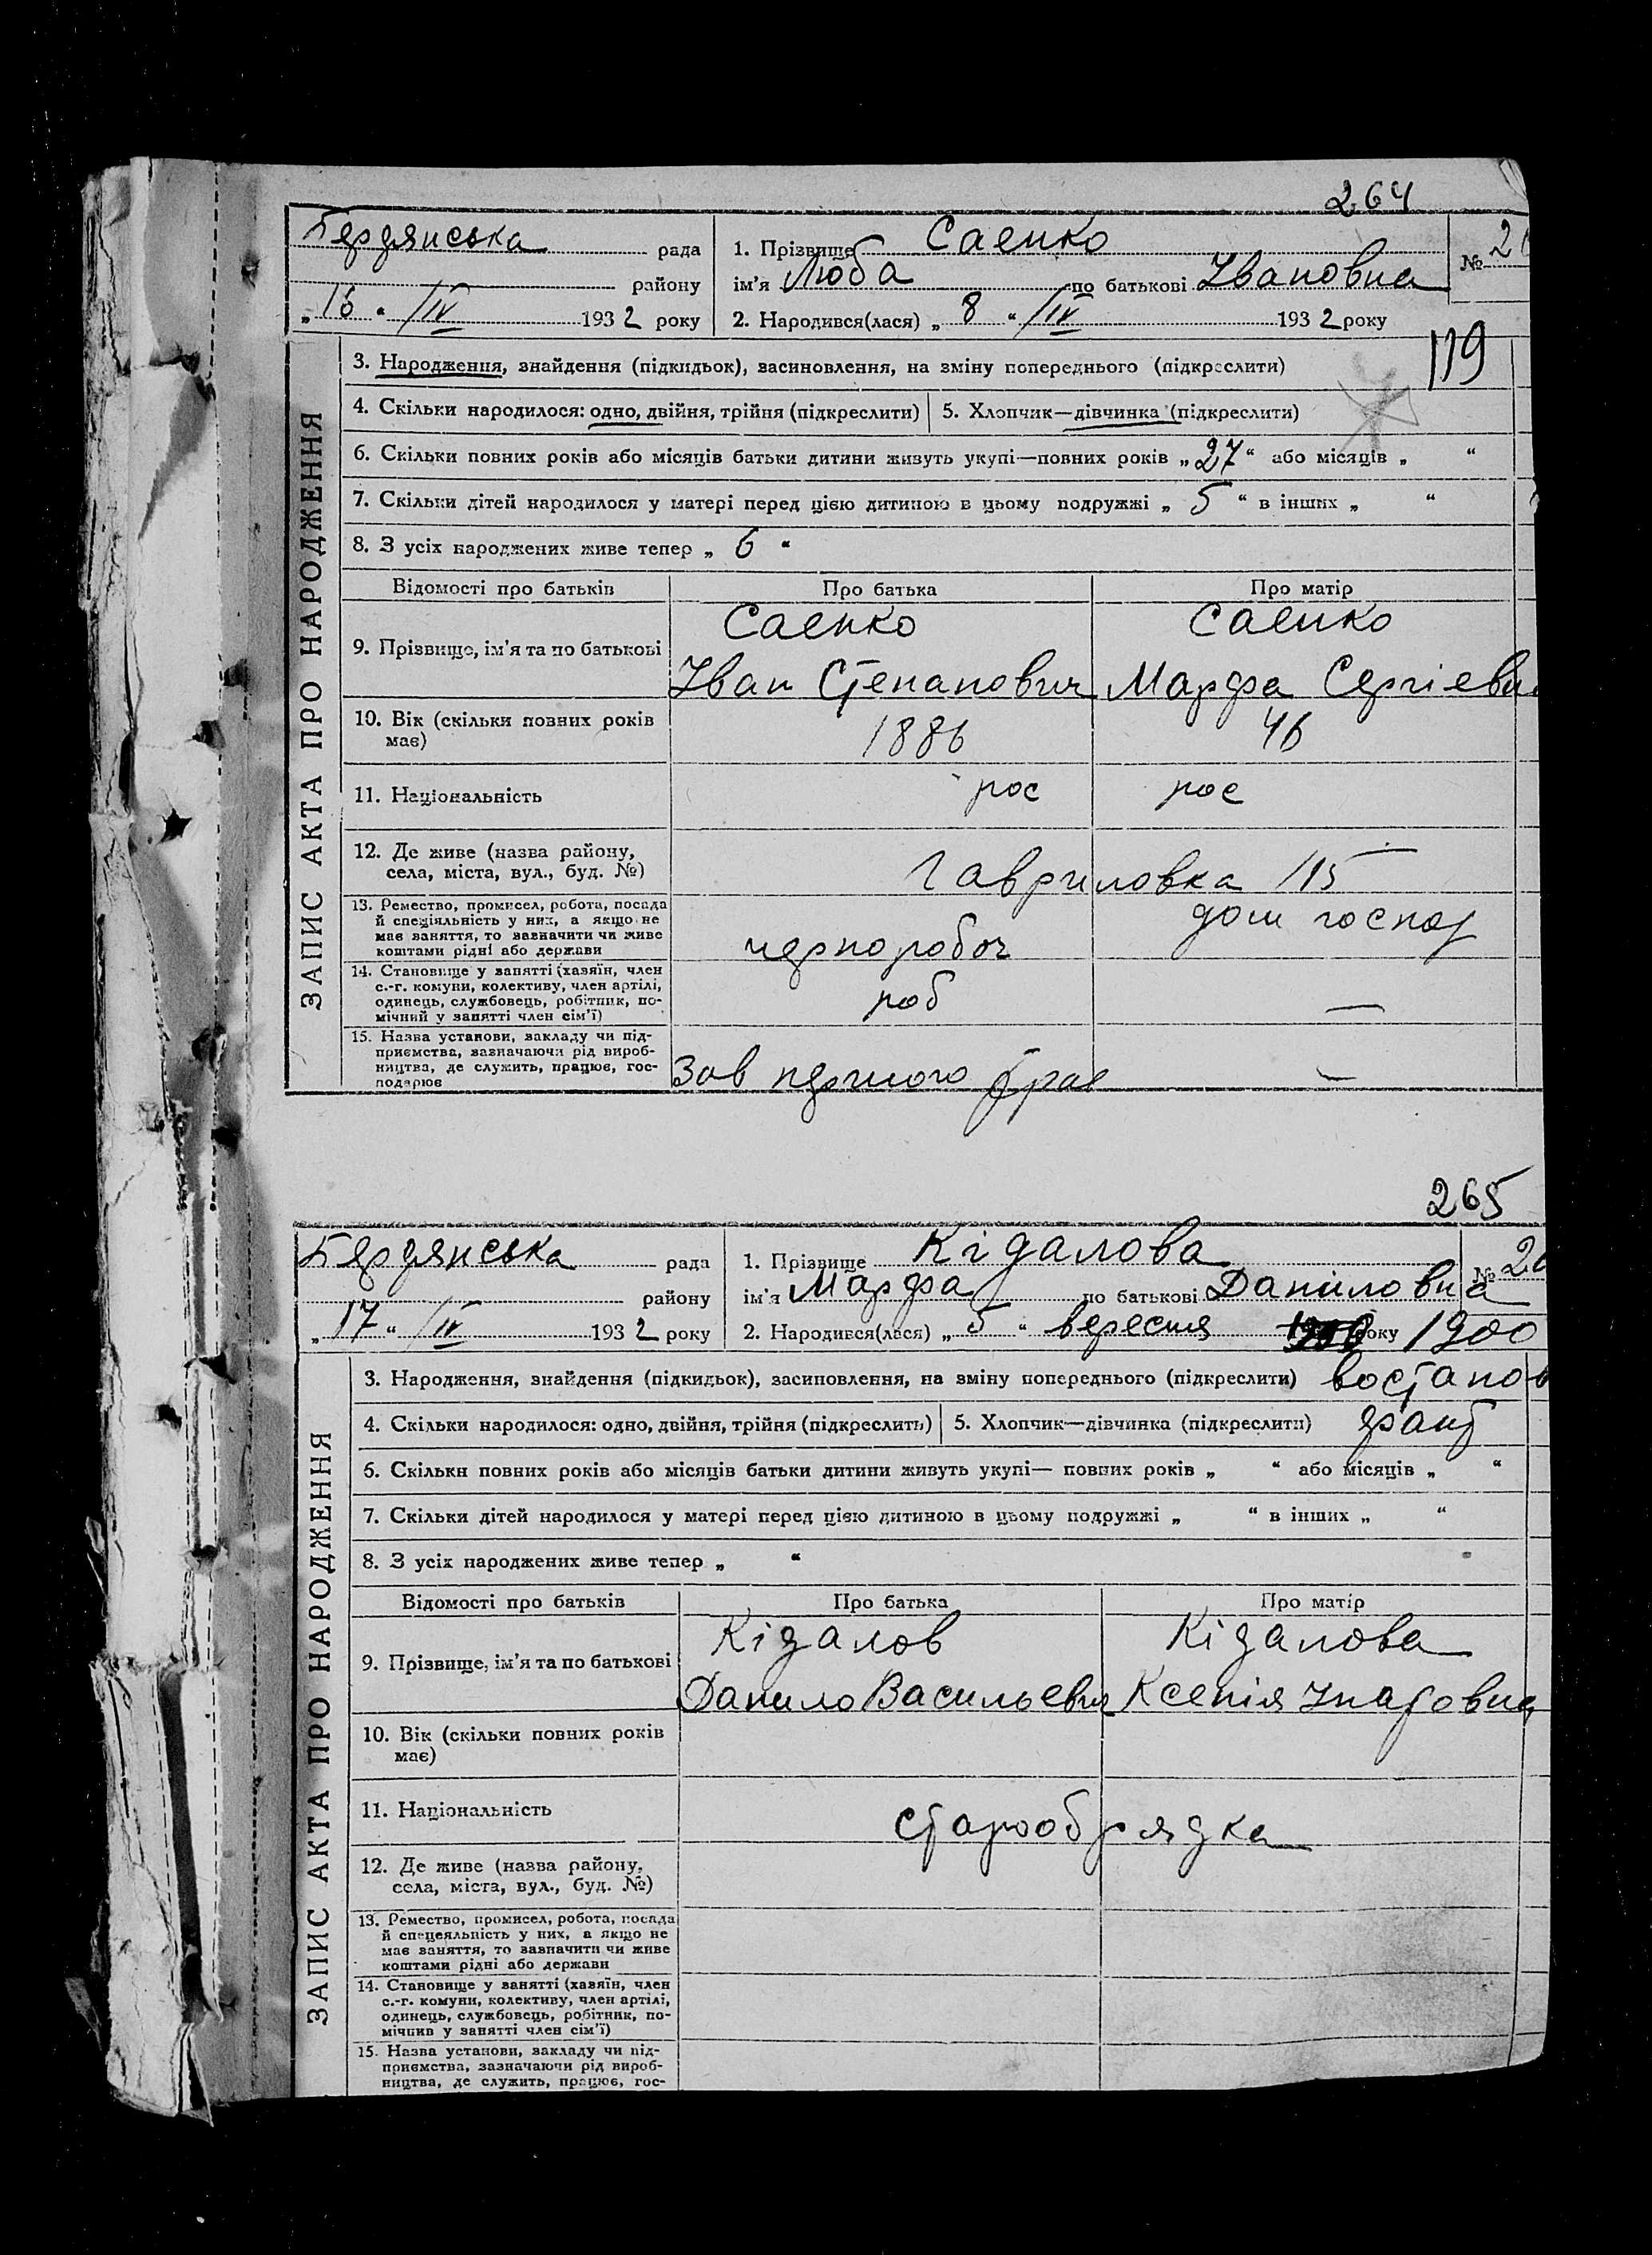 264
Бердянська рада
району
„16 “ /IV 1932 року
1. Прізвище Саенко
ім'я Люба по батькові Івановна
2. Народився(лася) „ 8 “ /IV 1932 року
№ 2
119
ЗАПИС АКТА ПРО НАРОДЖЕННЯ
3. Народження, знайдення (підкидьок), засиновлення, на зміну попереднього (підкреслити)
4. Скільки народилося: одно, двійня, трійня (підкреслити) 5. Хлопчик—дівчинка (підкреслити)
6. Скільки повних років або місяців батьки дитини живуть укупі—повних років „ 27 “ або місяців „ “
7. Скільки дітей народилося у матері перед цією дитиною в цьому подружжі „ 5 “ в інших „ “
8. З усіх народжених живе тепер „ 6 “
Відомості про батьків Про батька Про матір
Саенко Саенко
9. Прізвище, ім'я та по батькові
Іван Степанович Марфа Сергіевн
10. Вік (скільки повних років
має)
1886 46
11. Національність рос рос
12. Де живе (назва району,
села, міста, вул., буд. №)
Гавриловка 115
13. Ремество, промисел, робота, посада
й спеціяльність у них, а якщо не
має заняття, то зазначити чи живе
коштами рідні або держави
чернороboч дом господ
14. Становище у занятті (хазяїн, член
с.-г. комуни, колективу, член артілі,
одинець, службовець, робітник, по-
мічний у занятті член сім'ї)
роб —
15. Назва установи, закладу чи під-
приємства, зазначаючи рід вироб-
ництва, де служить, працює, гос-
подарює
Зав —
265
Бердянська рада
району
„17 “ /IV 1932 року
1. Прізвище Кідалова
ім'я Марфа по батькові Даниловна
2. Народився(лася) „ 5 “ вересня року 1900
№ 2
ЗАПИС АКТА ПРО НАРОДЖЕННЯ
3. Народження, знайдення (підкидьок), засиновлення, на зміну попереднього (підкреслити) востанов
4. Скільки народилося: одно, двійня, трійня (підкреслить) 5. Хлопчик—дівчинка (підкреслити)
6. Скільки повних років або місяців батьки дитини живуть укупі— повних років „ “ або місяців „ “
7. Скільки дітей народилося у матері перед цією дитиною в цьому подружжі „ “ в інших „ “
8. З усіх народжених живе тепер „ “
Відомості про батьків Про батька Про матір
Кідалов Кідалова
9. Прізвище, ім'я та по батькові
Данило Васильевич Ксенія Ігнатовна
10. Вік (скільки повних років
має)
11. Національність
старообрядка
12. Де живе (назва району,
села, міста, вул., буд. №)
13. Ремество, промисел, робота, посада
й спецеяльність у них, а якщо не
має заняття, то зазначити чи живе
коштами рідні або держави
14. Становище у занятті (хазяїн, член
с.-г. комуни, колективу, член артілі,
одинець, службовець, робітник, по-
мічнив у занятті член сім'ї)
15. Назва установи, закладу чи під-
приємства, зазначаючи рід вироб-
ництва, де служить, працює, гос-